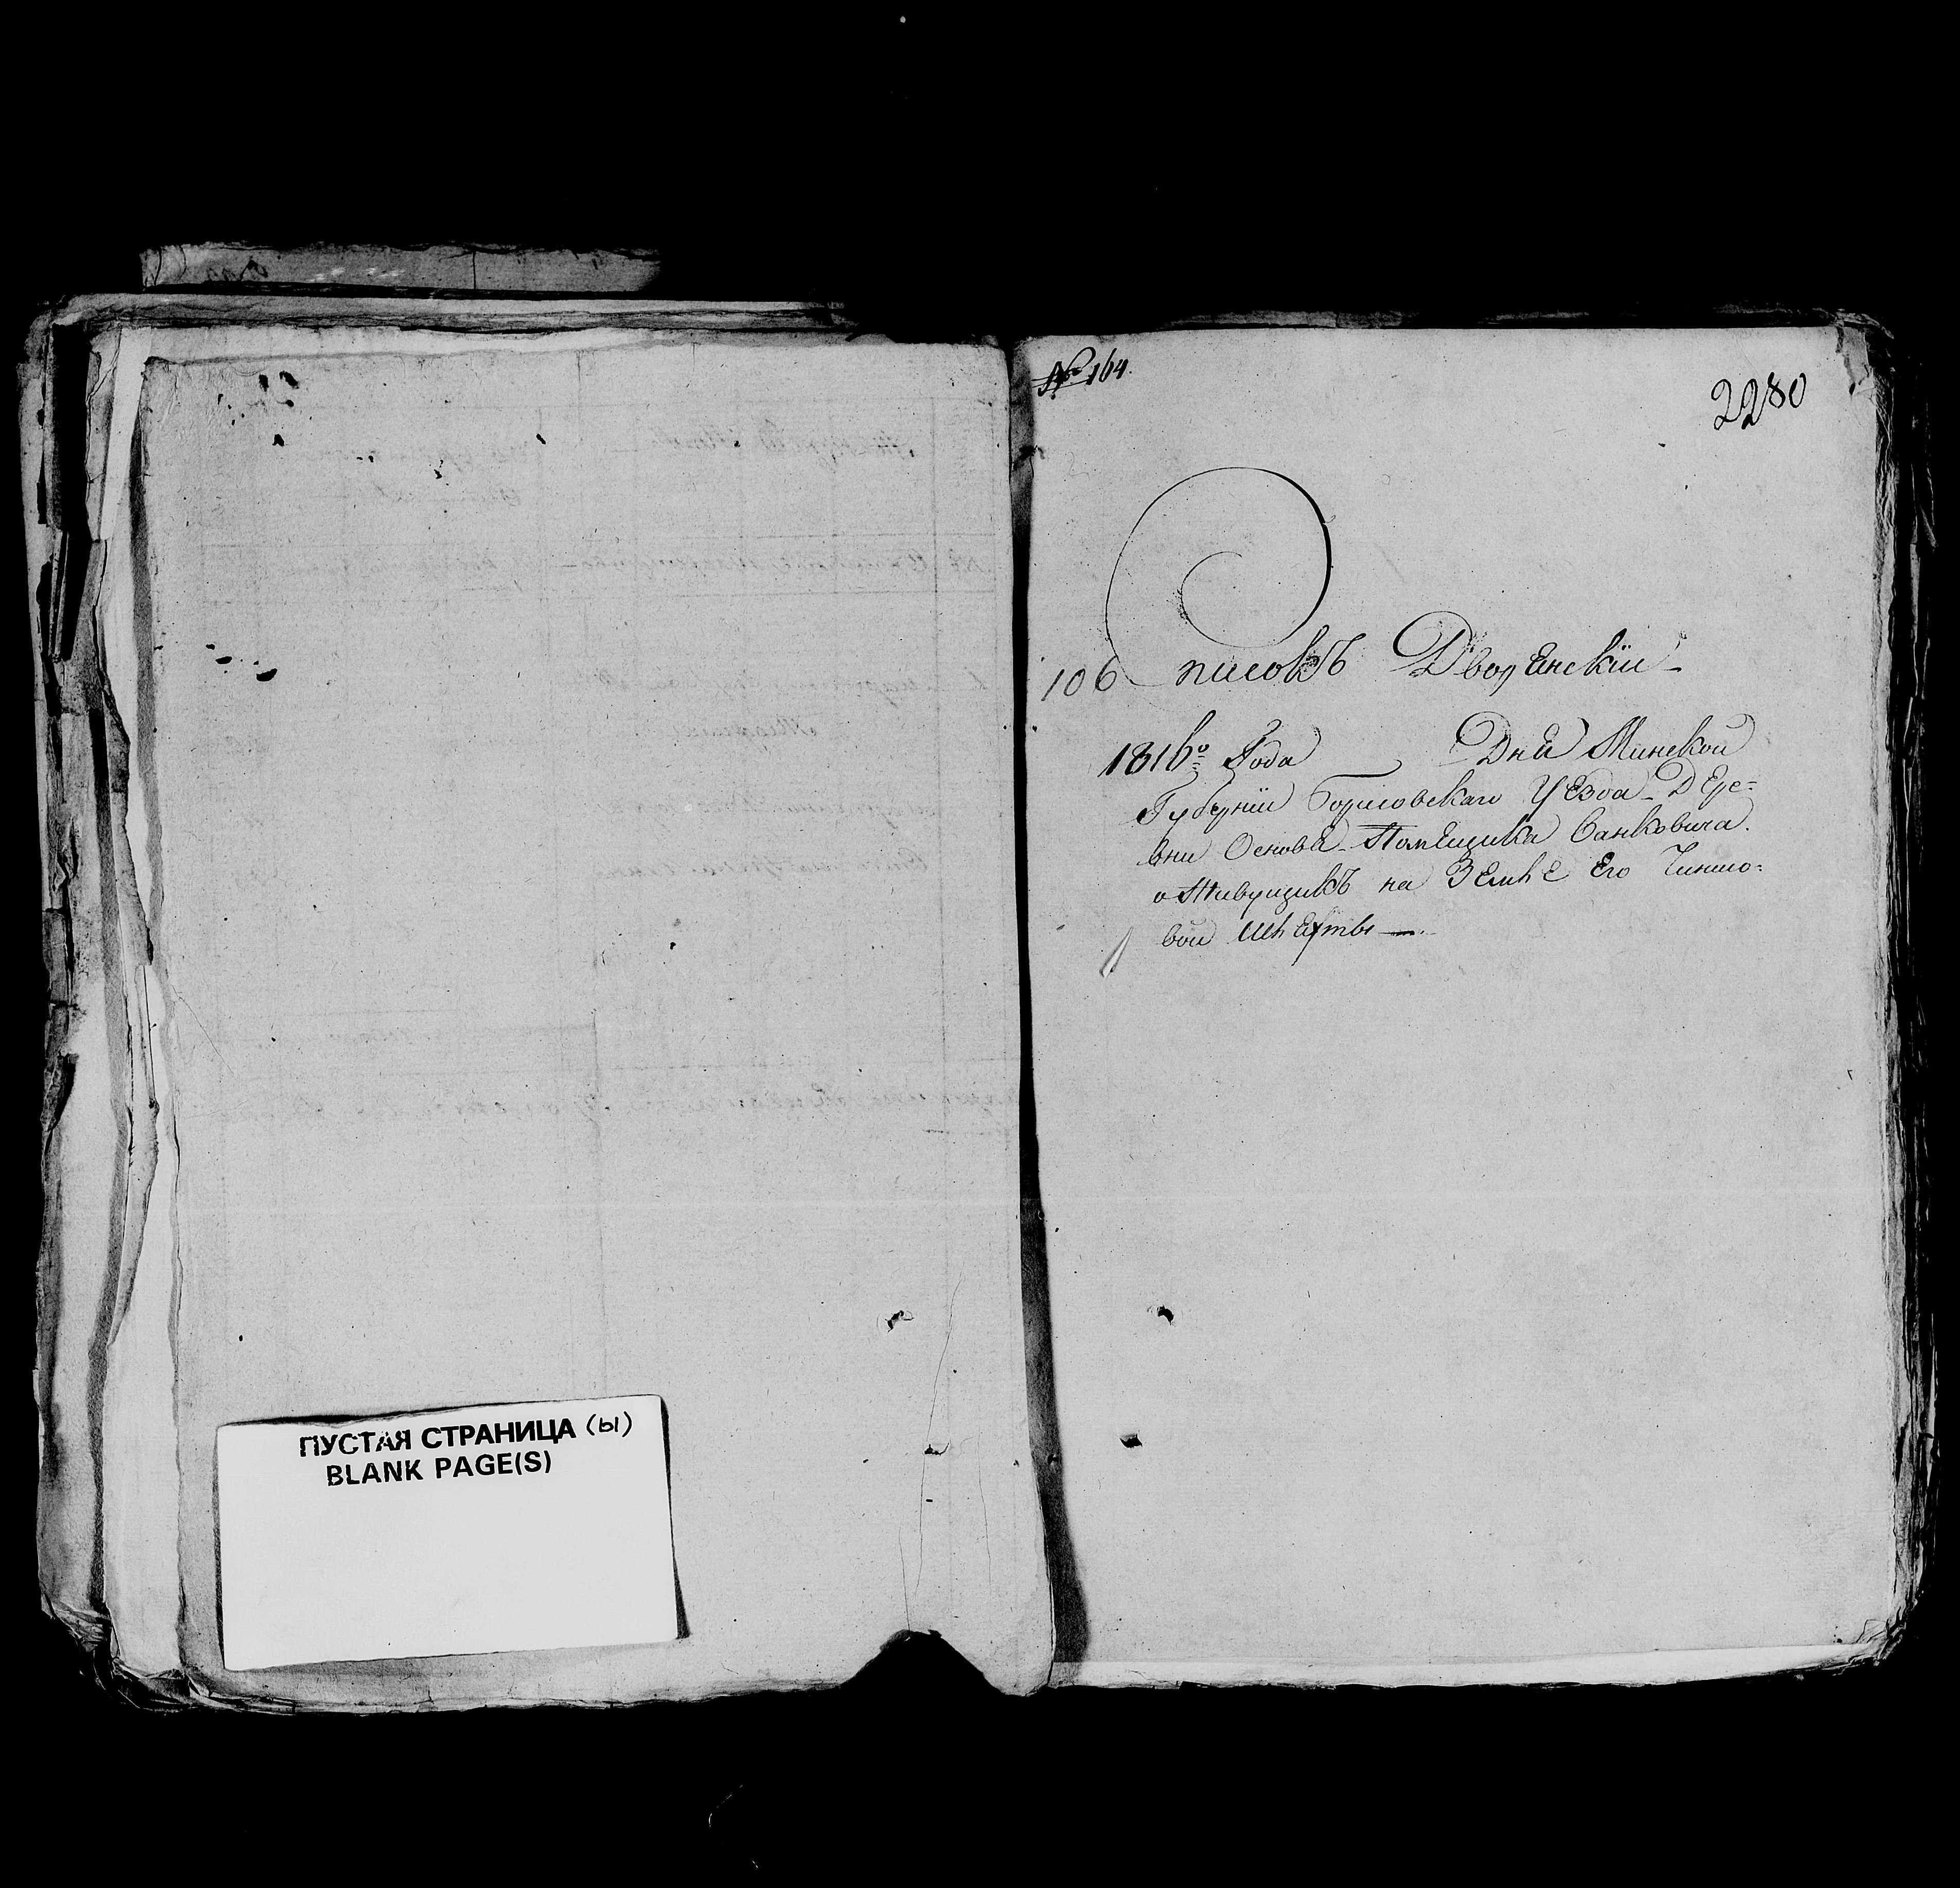 № 164.
2280
106 Списокъ Дворянскiи
1816го Года Дня Минской
Губернiи Борисовскаго Уезда Дере=
вни Основа Помещика Санковича.
о Живущихъ на Земле Его Чиншо=
вой Шляхты —.
ПУСТАЯ СТРАНИЦА (Ы)
BLANK PAGE(S)